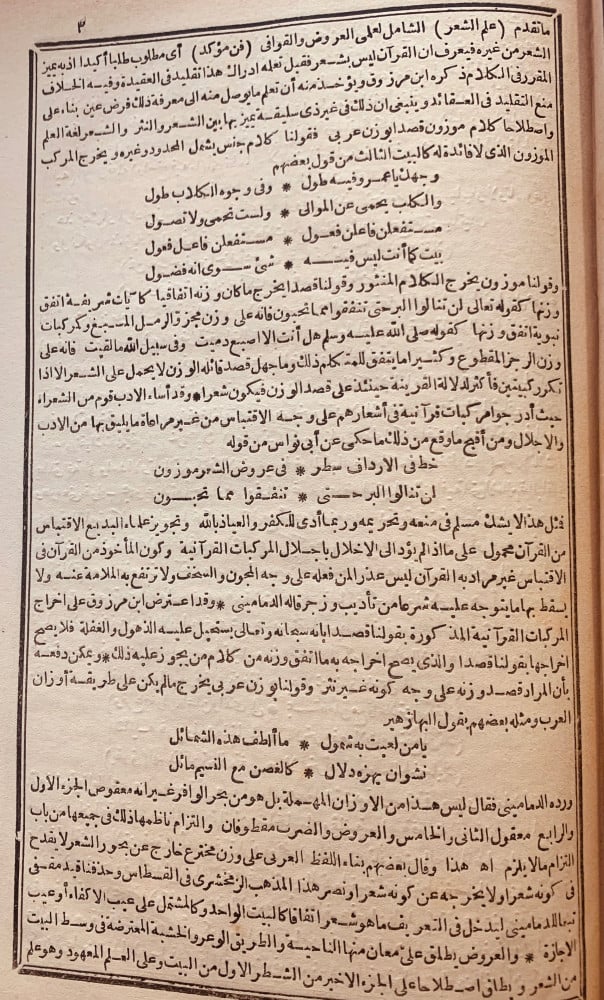 ٣
ما تقدم (علم الشعر) الشامل لعلمى العروض والقوافى (فن مؤكد) أى مطلوب طلبا أكيدا اذ به يميز
الشعر من غيره فيعرف ان القرآن ليس بشعر فقيل تعلمه ادراك هذا تقليد فى العقيدة وفيه الخلاف
المقرر فى الكلام ذكره ابن مرزوق ويؤخذ منه أن تعلم ما يوصل منه الى معرفة ذلك فرض عين بناء على
منع التقليد فى العقائد وينبغى ان ذلك فى غير ذى سليقة يميز بها بين الشعر والنثر والشعر لغة العلم
واصطلاحا كلام موزون قصدا بوزن عربى فقولنا كلام جنس يشمل المحدود وغيره ويخرج المركب
الموزون الذى لا فائدة له كالبيت الثالث من قول بعضهم
وجهك يا عمرو فيه طول * وفى وجوه الكلاب طول
والكلب يحمى عن الموالى * ولست تحمى ولا تصول
مستفعلن فاعلن فعول * مستفعلن فاعل فعول
بيت كما أنت ليس فيه * شئ سوى انه فضول
وقولنا موزون يخرج الكلام المنثور وقولنا قصدا يخرج ما كان وزنه اتفاقيا كآيات شريفة اتفق
وزنها كقوله تعالى لن تنالوا البر حتى تنفقوا مما تحبون فانه على وزن مجزو الرمل المسبغ وكمركبات
نبوية اتفق وزنها كقوله صلى الله عليه وسلم هل أنت الا اصبع دميت وفى سبيل الله ما لقيت فانه على
وزن الرجز المقطوع وكثيرا ما يتفق للمتكلم ذلك وما جهل قصد قائله الوزن لا يحمل على الشعر الا اذا
تكرر كبيتين فأكثر لدلالة القرينة حينئذ على قصد الوزن فيكون شعرا * وقد أساء الادب قوم من الشعراء
حيث أدرجوا مركبات قرآنية فى أشعارهم على وجه الاقتباس من غير مراعاة ما يليق بها من الادب
والاجلال ومن أقبح ما وقع من ذلك ما حكى عن أبى نواس من قوله
خط فى الارداف سطر * فى عروض الشعر موزون
لن تنالوا البر حتى * تنفقوا مما تحبون
فمثل هذا لا يشك مسلم فى منعه وتحريمه وربما أدى للكفر والعياذ بالله وتجويز علماء البديع الاقتباس
من القرآن محمول على ما اذا لم يؤد الى الاخلال باجلال المركبات القرآنية وكون المأخوذ من القرآن فى
الاقتباس غير مراد به القرآن ليس عذرا لمن فعله على وجه المجون والسخف ولا ترتفع به الملامة عنه ولا
يسقط بها ما يتوجه عليه شرعا من تأديب وزجر قاله الدمامينى * وقد اعترض ابن مرزوق على اخراج
المركبات القرآنية المذكورة بقولنا قصدا بانه سبحانه وتعالى يستحيل عليه الذهول والغفلة فلا يصح
اخراجها بقولنا قصدا والذى يصح اخراجه به ما اتفق وزنه من كلام من يجوز عليه ذلك * ويمكن دفعه
بأن المراد قصد وزنه على وجه كونه غير نثر وقولنا بوزن عربى يخرج ما لم يكن على طريقة أوزان
العرب ومثله بعضهم بقول البها زهير
يا من لعبت به شمول * ما ألطف هذه الشمائل
نشوان يهزه دلال * كالغصن مع النسيم مائل
ورده الدمامينى فقال ليس هذا من الاوزان المهملة بل هو من بحر الوافر غير انه معقوص الجزء الاول
والرابع معقول الثانى والخامس والعروض والضرب مقطوفان والتزام ناظمها ذلك فى جميعها من باب
التزام ما لا يلزم اه هذا وقال بعضهم بناء اللفظ العربى على وزن مخترع خارج عن بحور الشعر لا يقدح
فى كونه شعرا ولا يخرجه عن كونه شعرا ونصر هذا المذهب الزمخشرى فى القسطاس وحذفنا قيد مقفى
تبعا للدمامينى ليدخل فى التعريف ما هو شعر اتفاقا كالبيت الواحد وكالمشتمل على عيب الاكفاء أو عيب
الاجازة * والعروض يطلق على معان منها الناحية والطريق الوعر والخشبة المعترضة فى وسط البيت
من الشعر ويطلق اصطلاحا على الجزء الاخير من الشطر الاول من البيت وعلى العلم المعهود وهو علم